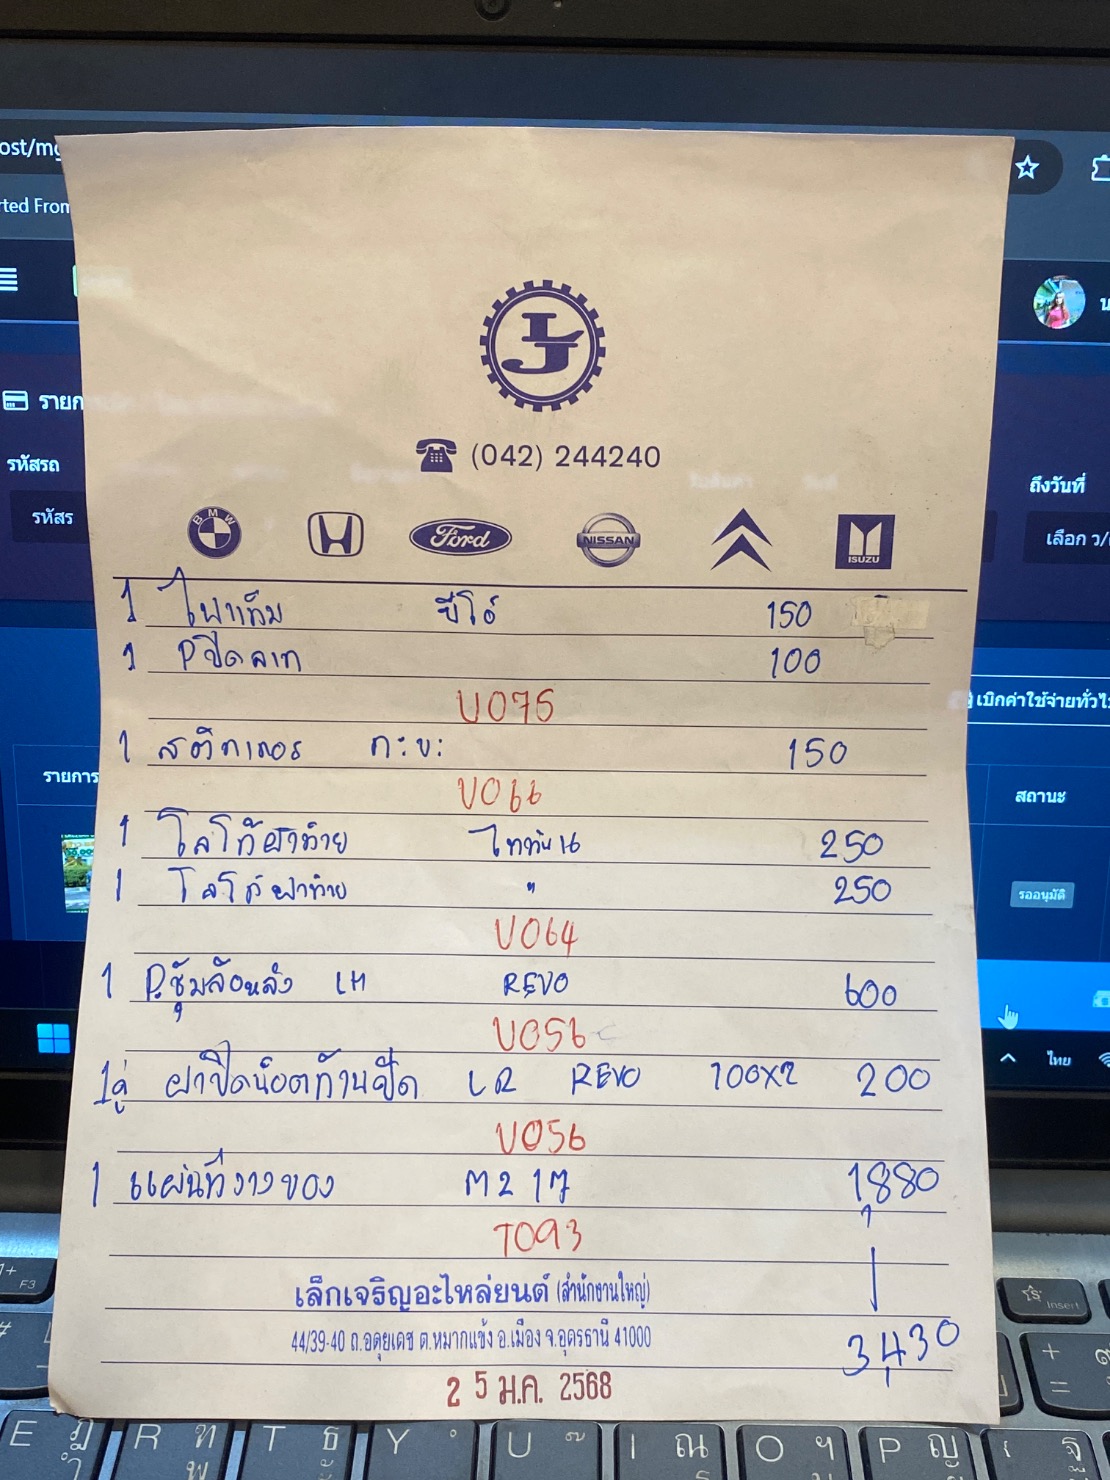 ost/mg
rted From
รายก
รหัสรถ
รหัสร
ถึงวันที่
เลือก ว/
เบิกค่าใช้จ่ายทั่วไป
รายการ
สถานะ
รออนุมัติ
ไทย
LJ
(042) 244240
BMW H Ford NISSAN ISUZU
1 ไฟแท็ม ยีโอ้ 150
1 Pปีดลาท 100
U075
1 สติกเกอร กะบะ 150
U066
1 โลโก้ฝาท้าย ไททัน 16 250
1 โลโก้ฝาท้าย " 250
U064
1 P.ซุ้มล้อหลัง LH REVO 600
U056
1คู่ ฝาปิดน๊อตท้านปีด LR REVO 100X2 200
U056
1 แผ่นที่วางของ M217 1,880
T093
เล็กเจริญอะไหล่ยนต์ (สำนักงานใหญ่)
44/39-40 ถ.อดุยเดช ต.หมากแข้ง อ.เมือง จ.อุดรธานี 41000
3,430
25 ม.ค. 2568
F3
Insert
E R T Y U I O P